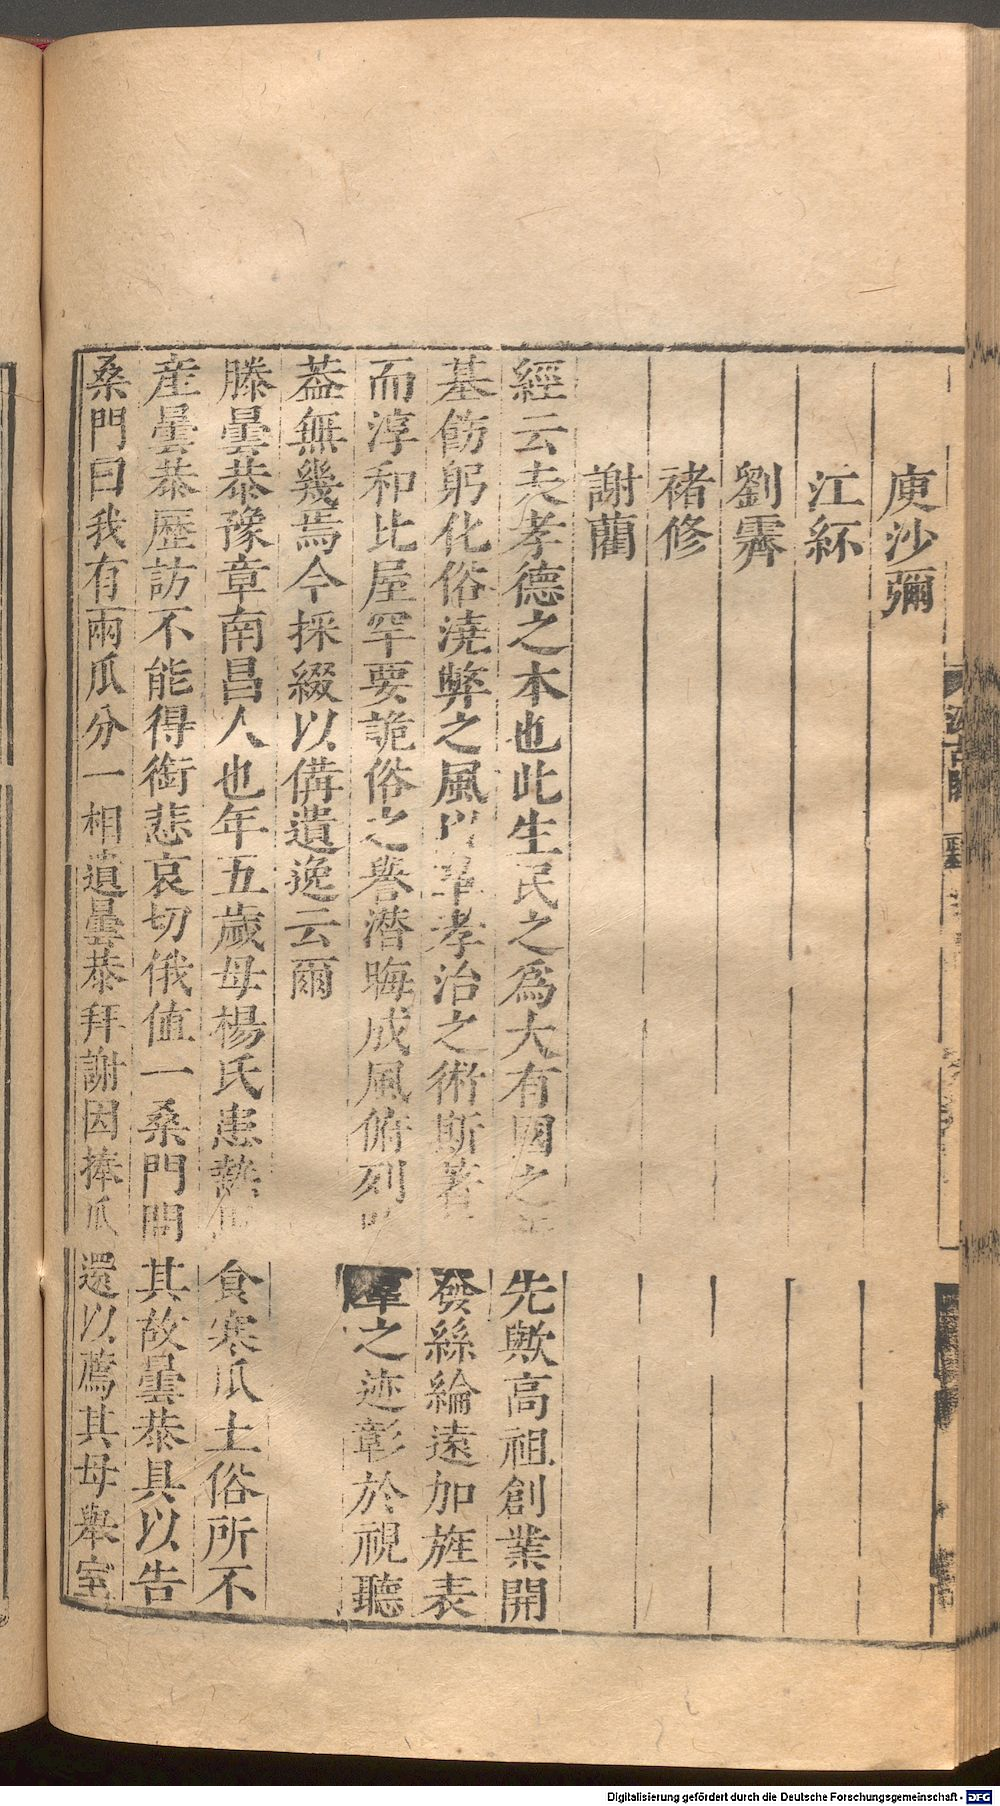 庾沙彌
江紑
劉霽
褚修
謝藺
經云夫孝德之本也此生民之為大有國之先歟高祖創業開
基飭躬化俗澆弊之風以革孝治之術斯著發絲綸遠加旌表
而淳和比屋罕要詭俗之譽潛晦成風俯列之迹彰於視聽
葢無幾焉今採綴以備遺逸云爾
滕曇恭豫章南昌人也年五歲母楊氏患熱食寒瓜土俗所不
産曇恭歷訪不能得銜悲哀切俄值一桑門問其故曇恭具以告
桑門曰我有兩瓜分一相遺曇恭拜謝因捧瓜還以薦其母舉室
汲古閣
Digitalisierung gefördert durch die Deutsche Forschungsgemeinschaft - DFG